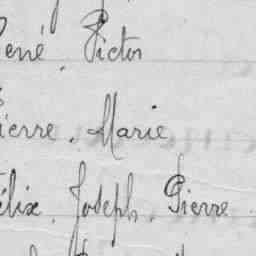 René, Victor
Pierre, Marie
Félix, Joseph, Pierre